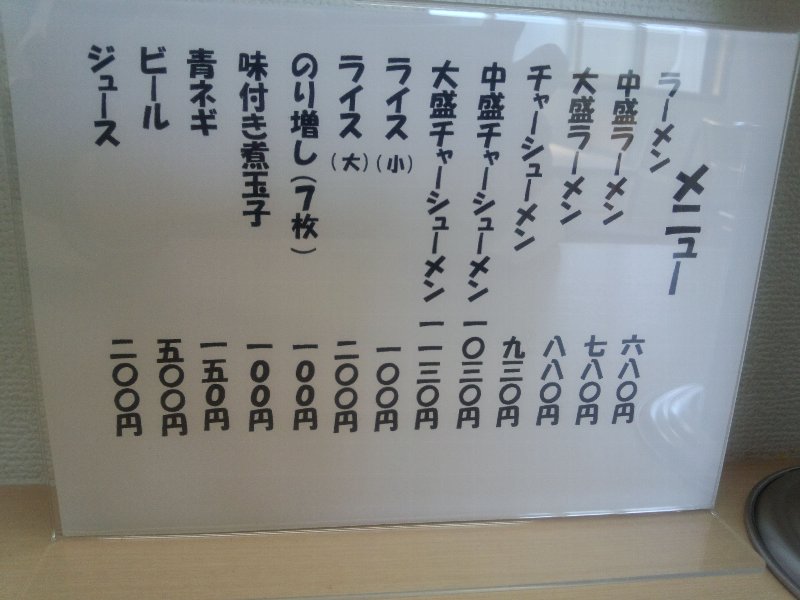 メニュー
ラーメン 六八〇円
中盛ラーメン 七八〇円
大盛ラーメン 八八〇円
チャーシューメン 九三〇円
中盛チャーシューメン 一〇三〇円
大盛チャーシューメン 一一三〇円
ライス(小) 一〇〇円
ライス(大) 二〇〇円
のり増し(7枚) 一〇〇円
味付き煮玉子 一〇〇円
青ネギ 一五〇円
ビール 五〇〇円
ジュース 二〇〇円